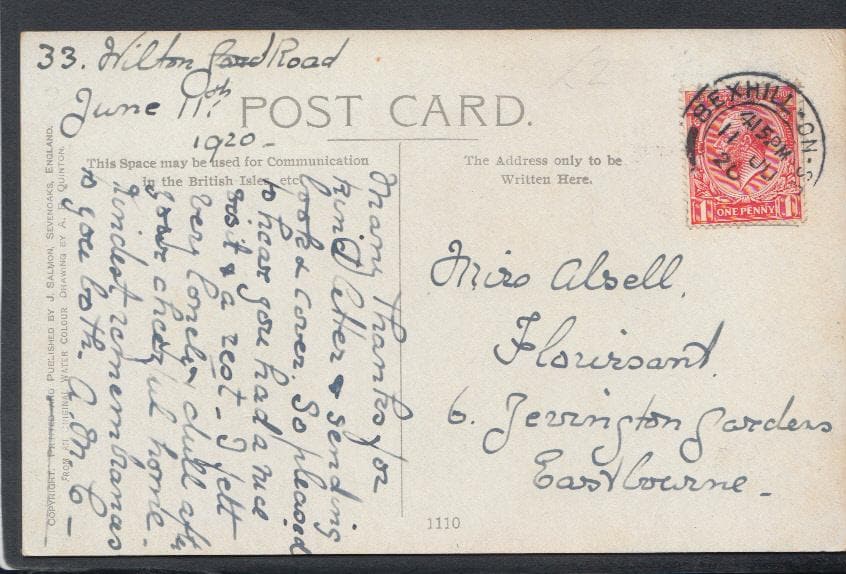 33. Wilton Road
June 11th
1920 -
POST CARD.
This Space may be used for Communication
in the British Isles, etc.
The Address only to be
Written Here.
BEXHILL-ON-S
415PM
11 JU
20
ONE PENNY
1 1
Many thanks for
kind letter & sending
book & cover. So pleased
to hear you had a nice
visit & a rest - I felt
very lonely & dull after
your cheerful home.
Kindest remembrances
to you both. A.M.C -
Miss Alsell.
Flourisant.
6. Jevington Gardens
Eastbourne -
COPYRIGHT. PRINTED AND PUBLISHED BY J. SALMON, SEVENOAKS, ENGLAND.
FROM AN ORIGINAL WATER COLOUR DRAWING BY A. R. QUINTON.
1110
£2